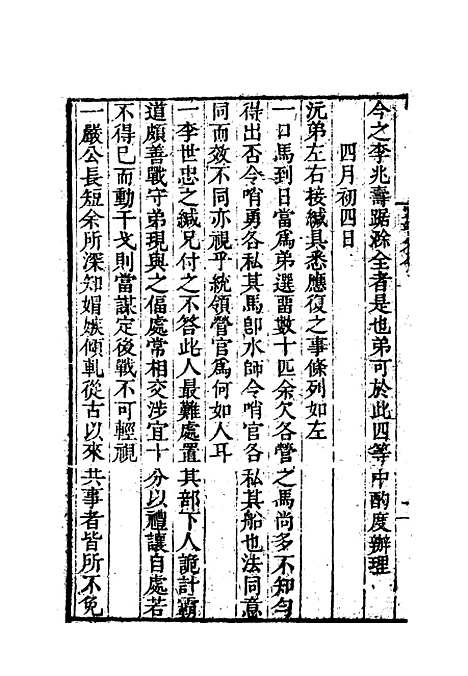 今之李兆壽踞滁全者是也弟可於此四等中酌度辦理
四月初四日
沅弟左右接緘具悉應復之事條列如左
一口馬到日當爲弟選留數十匹余欠各營之馬尚多不知勻
得出否今哨勇各私其馬卽水師令哨官各私其船也法同意
同而效不同亦視乎統領營官爲何如人耳
一李世忠之緘兄付之不答此人最難處置其部下人詭計霸
道頗善戰守弟現與之偪處常相交涉宜十分以禮讓自處若
不得已而動干戈則當謀定後戰不可輕視
一嚴公長短余所深知媢嫉傾軋從古以來共事者皆所不免